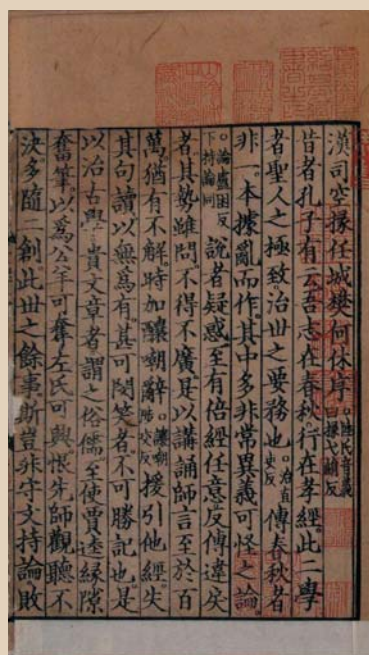 漢司空掾任城樊何休序。陸氏音義曰掾弋絹反
昔者孔子有云吾志在春秋行在孝經此二學
者聖人之極致治世之要務也。治直吏反傳春秋者
非一本據亂而作其中多非常異義可怪之論
。論盧困反下持論同說者疑惑至有倍經任意反傳違戾
者其勢雖問不得不廣是以講誦師言至於百
萬猶有不解時加釀嘲辭。讓嘲陟交反援引他經失
其句讀以無為有甚可閔笑者不可勝記也是
以治古學貴文章者謂之俗儒至使賈逵緣隙
奮筆以為公羊可奪左氏可興恨先師觀聽不
決多隨二創此世之餘事斯豈非守文持論敗